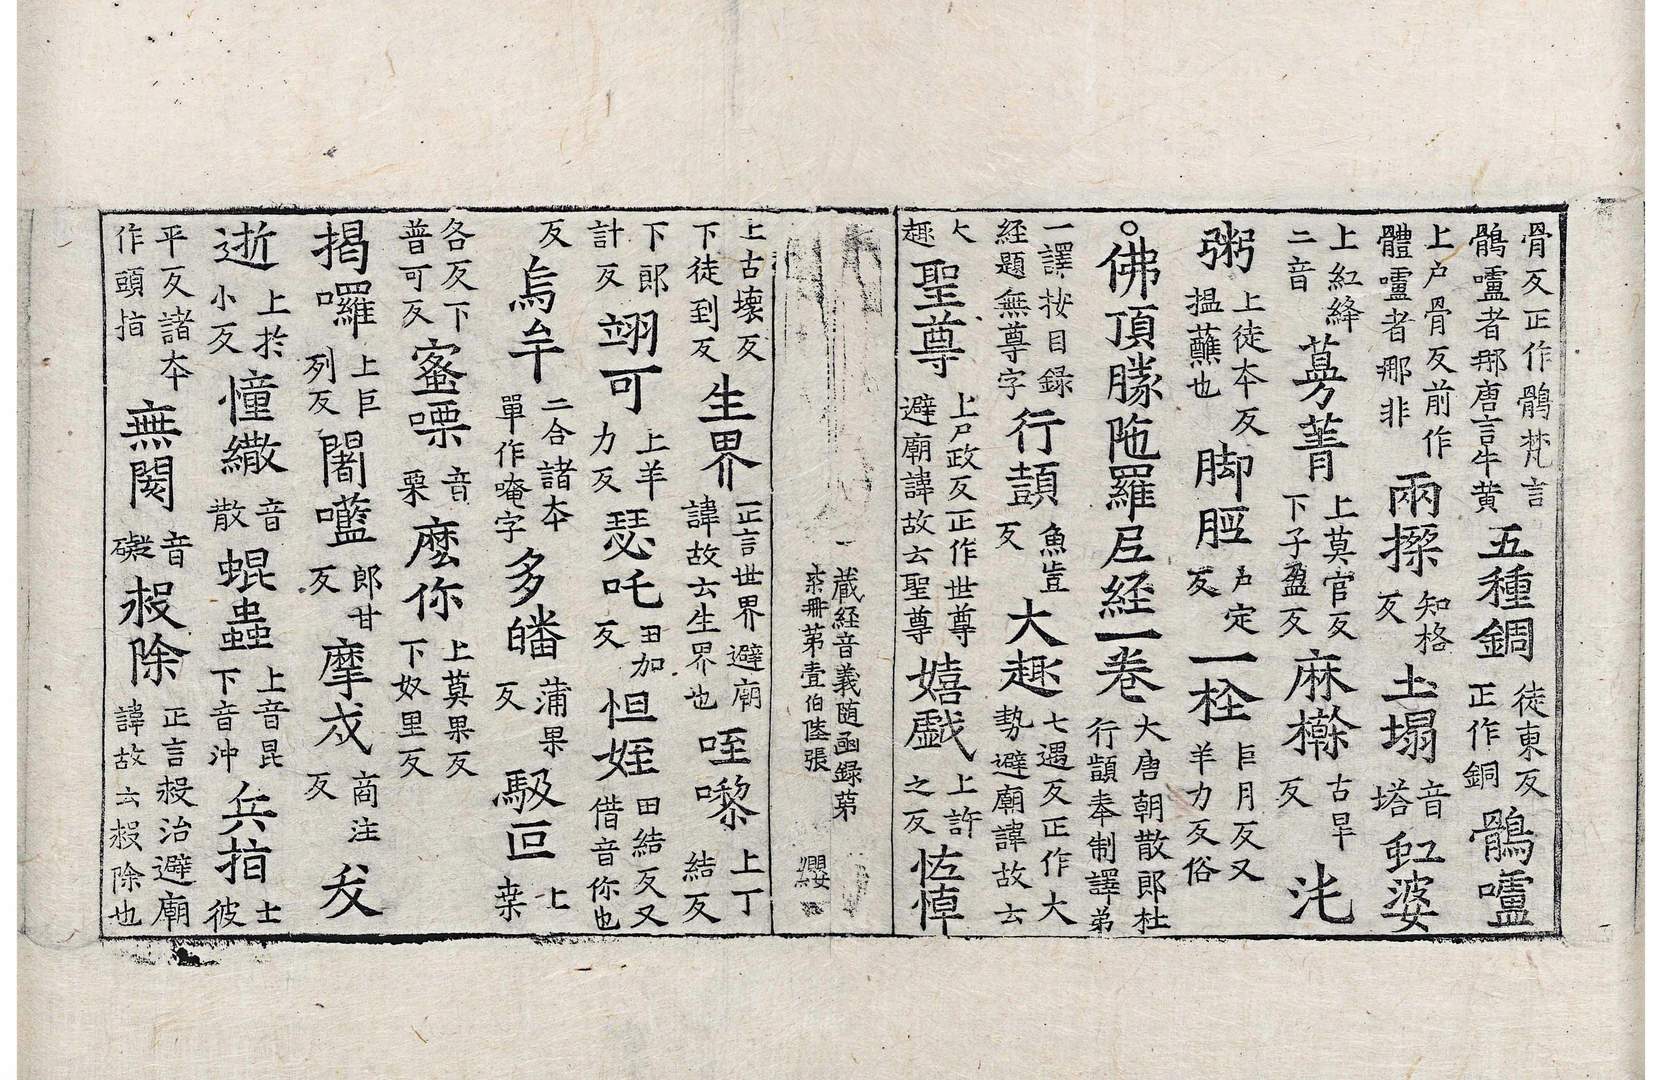 骨反正作鶻梵言
鶻嚧者那唐言牛黄
五種錭
徒東反
正作銅
鶻嚧
上户骨反前作
體嚧者那非
兩搩
知格
反
土塌
音
塔
虹婆
上紅絳
二音
菁
上莫官反
下子盈反
麻
古旱
反
粥
上徒夲反
揾蘸也
脚脛
户定
反
一栓
巨月反又
羊力反俗
○佛頂陁羅尼経一卷
大唐朝散郎杜
行顗奉制譯弟
一譯按目録
経題無尊字
行顗
魚豈
反
大趣
七遇反正作大
勢避廟諱故云
大
趣
聖尊
上尸政反正作世尊
避廟諱故云聖尊
嬉戯
上許
之反
恠悼
一藏経音義随函録第
柒冊第壹伯陸張
纓
上古壊反
下徒到反
生界
正言世界避廟
諱故云生界也
咥嚟
上丁
結反
下郎
計反
翊可
上羊
力反
瑟吒
田加
反
怛姪
田結反又
借音你也
反
烏牟
二合諸夲
單作唵字
多皤
蒲果
反
馺叵
上
桒
各反下
普可反
蜜㗚
音
栗
麽你
上莫果反
下奴里反
揭囉
上巨
列反
闍㘕
郎甘
反
摩戍
商注
反
犮
逝
上扵
小反
憧繖
音
散
蜫蟲
上音昆
下音沖
兵拍
士
彼
平反諸夲
作頭指
無閡
音
礙
殺除
正言殺治避廟
諱故云殺除也